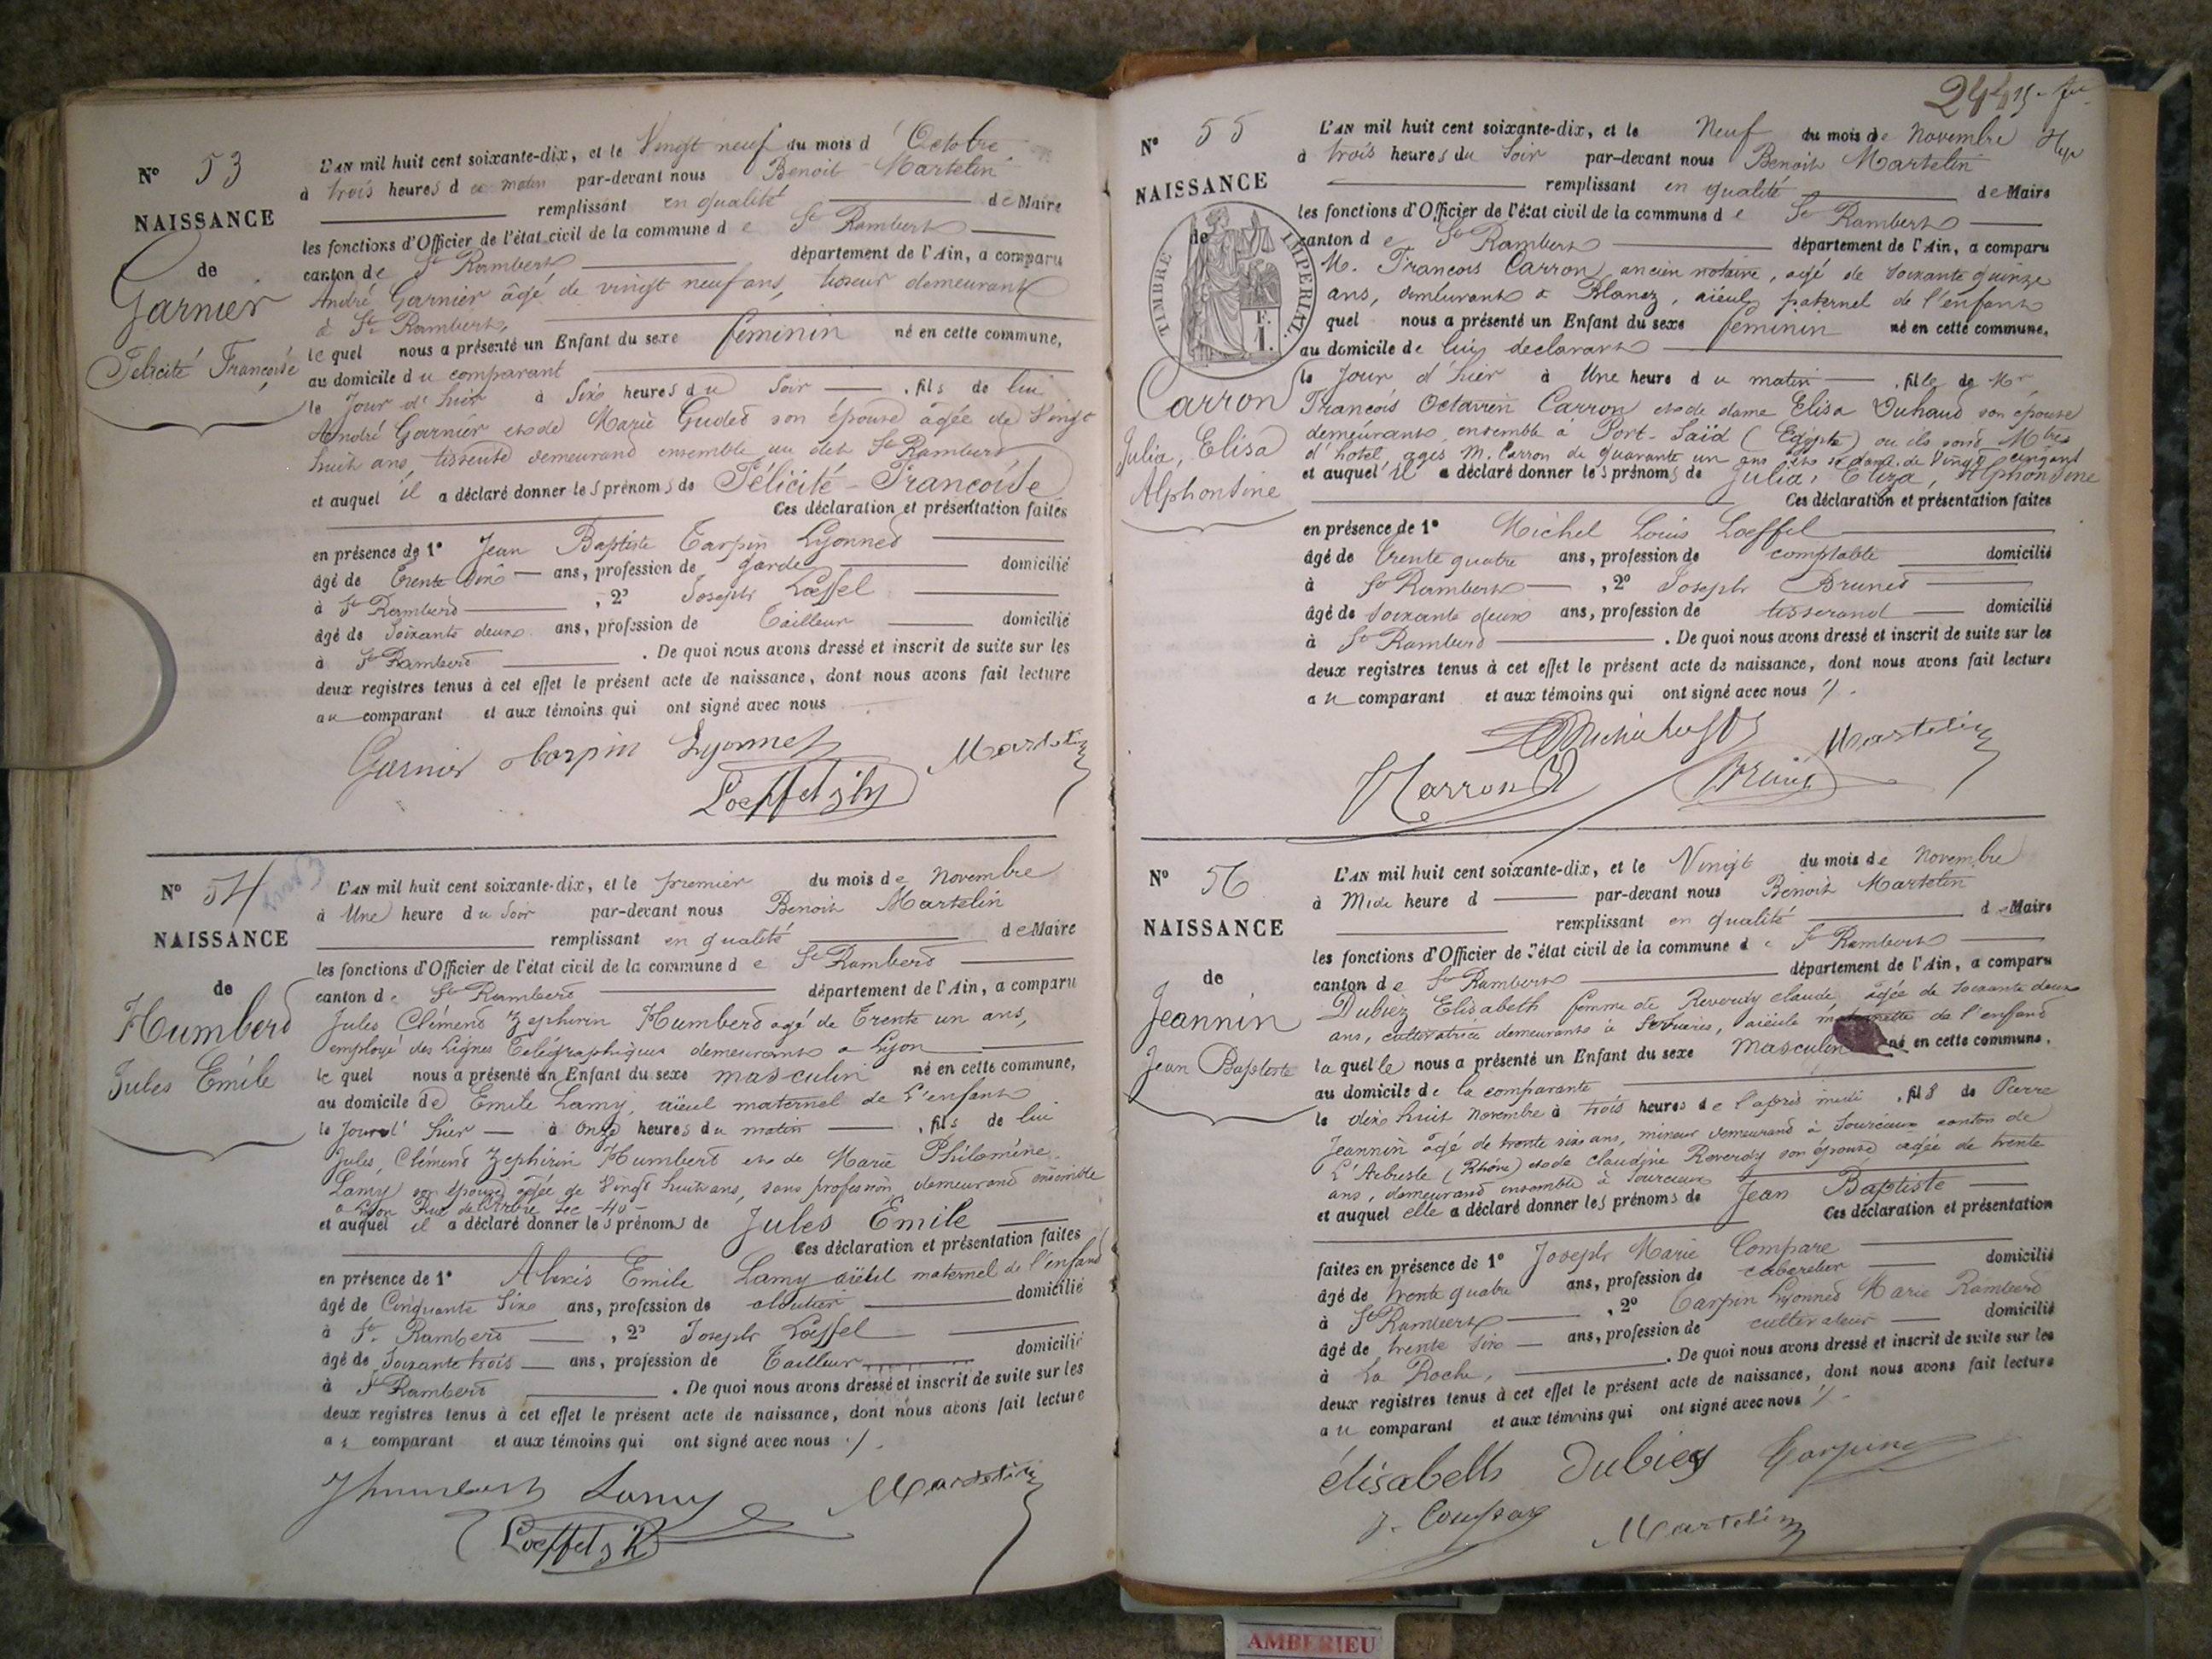 N° 53
NAISSANCE
de
Garnier
Félicité Françoise
L'AN mil huit cent soixante-dix, et le Vingt neuf du mois d'Octobre
à trois heures du matin par-devant nous Benoit Martelin
remplissant en qualité de Maire
les fonctions d'Officier de l'état civil de la commune de St Rambert
canton de St Rambert département de l'Ain, a comparu
André Garnier âgé de vingt neuf ans, tisseur demeurant
à St Rambert,
lequel nous a présenté un Enfant du sexe féminin né en cette commune,
au domicile du comparant
le Jour d'hier à Six heures du Soir, fils de lui
André Garnier et de Marie Guded son épouse âgée de Vingt
huit ans, tisseuse demeurand ensemble au dit St Rambert
et auquel il a déclaré donner les prénoms de Félicité-Françoise
Ces déclaration et présentation faites
en présence de 1° Jean Baptiste Tarpin Lyonned
âgé de trente six ans, profession de garde domicilié
à St Ramberd, 2° Joseph Lœffel
âgé de Soixante deux ans, profession de Tailleur domicilié
à St Ramberd. De quoi nous avons dressé et inscrit de suite sur les
deux registres tenus à cet effet le présent acte de naissance, dont nous avons fait lecture
au comparant et aux témoins qui ont signé avec nous
Garnier Tarpin Lyonnet Martelin
Loeffel
N° 54
NAISSANCE
de
Humberd
Jules Emile
L'AN mil huit cent soixante-dix, et le premier du mois de Novembre
à Une heure du Soir par-devant nous Benoit Martelin
remplissant en qualité de Maire
les fonctions d'Officier de l'état civil de la commune de St Ramberd
canton de St Ramberd département de l'Ain, a comparu
Jules, Clémend Zephirin Humberd agé de Trente un ans,
employé des Lignes Télégraphiques demeurant a Lyon
lequel nous a présenté un Enfant du sexe masculin né en cette commune,
au domicile de Emile Lamy, aïeul maternel de l'enfant
le Jour d'hier à onze heures du matin, fils de lui
Jules, Clémend Zephirin Humbert et de Marie Philomène
Lamy son épouse agée de Vingt huit ans, sans profession, demeurand ensemble
a Lyon Rue de l'Arbre Sec -40-
et auquel il a déclaré donner les prénoms de Jules Emile
Ces déclaration et présentation faites
en présence de 1° Alexis Emile Lamy aïeul maternel de l'enfand
âgé de Cinquante Six ans, profession de cloutier domicilié
à St Ramberd, 2° Joseph Lœffel
âgé de Soixante trois ans, profession de Tailleur domicilié
à St Ramberd. De quoi nous avons dressé et inscrit de suite sur les
deux registres tenus à cet effet le présent acte de naissance, dont nous avons fait lecture
au comparant et aux témoins qui ont signé avec nous ./.
Jhumbert Lamy Martelin
Loeffel
244
N° 55
NAISSANCE
de
TIMBRE IMPERIAL
Carron
Julia, Elisa
Alphonsine
L'AN mil huit cent soixante-dix, et le Neuf du mois de Novembre
à trois heures du Soir par-devant nous Benoit Martelin
remplissant en qualité de Maire
les fonctions d'Officier de l'état civil de la commune de St Rambert
canton de St Rambert département de l'Ain, a comparu
M. François Carron, ancien notaire, agé de Soixante quinze
ans, demeurant a Blanaz, aïeul paternel de l'enfant
quel nous a présenté un Enfant du sexe féminin né en cette commune,
au domicile de lui declarant
le Jour d'hier à Une heure du matin, fille de Mr
François Octavien Carron et de dame Elisa Duhaud son épouse
demeurant ensemble à Port-Saïd (Egypte) ou ils sont Mtres
d'hôtel, agés M. Carron de quarante un ans et sa dame de Vingt cinq ans
et auquel il a déclaré donner les prénoms de Julia, Eliza, Alphonsine
Ces déclaration et présentation faites
en présence de 1° Michel Louis Loeffel
âgé de trente quatre ans, profession de comptable domicilié
à St Rambert, 2° Joseph Brunet
âgé de Soixante deux ans, profession de tisserand domicilié
à St Ramberd. De quoi nous avons dressé et inscrit de suite sur les
deux registres tenus à cet effet le présent acte de naissance, dont nous avons fait lecture
au comparant et aux témoins qui ont signé avec nous ./.
Martelin
Carron
N° 56
NAISSANCE
de
Jeannin
Jean Baptiste
L'AN mil huit cent soixante-dix, et le Vingt du mois de Novembre
à Midi heure d par-devant nous Benoit Martelin
remplissant en qualité de Maire
les fonctions d'Officier de l'état civil de la commune de St Rambert
canton de St Rambert département de l'Ain, a comparu
Dubiez Elisabeth femme de Reverdy claude agée de soixante deux
ans, cultivatrice demeurant à Serrières, aïeule maternelle de l'enfand
laquelle nous a présenté un Enfant du sexe masculin né en cette commune,
au domicile de la comparante
le dix huit Novembre à trois heures de l'après midi, fils de Pierre
Jeannin âgé de trente six ans, mineur demeurand à Sourcieux canton de
L'Arbresle (Rhône) et de claudine Reverdy son épouse agée de trente
ans, demeurand ensemble à Sourcieux
et auquel elle a déclaré donner les prénoms de Jean Baptiste
Ces déclaration et présentation
faites en présence de 1° Joseph Marie Compare
âgé de trente quatre ans, profession de cabaretier domicilié
à St Rambert, 2° Tarpin Lyonned Marie Ramberd
âgé de trente six ans, profession de cultivateur domicilié
à La Roche. De quoi nous avons dressé et inscrit de suite sur les
deux registres tenus à cet effet le présent acte de naissance, dont nous avons fait lecture
au comparant et aux témoins qui ont signé avec nous ./.
élisabeth Dubiez Tarpin
Martelin
AMBERIEU